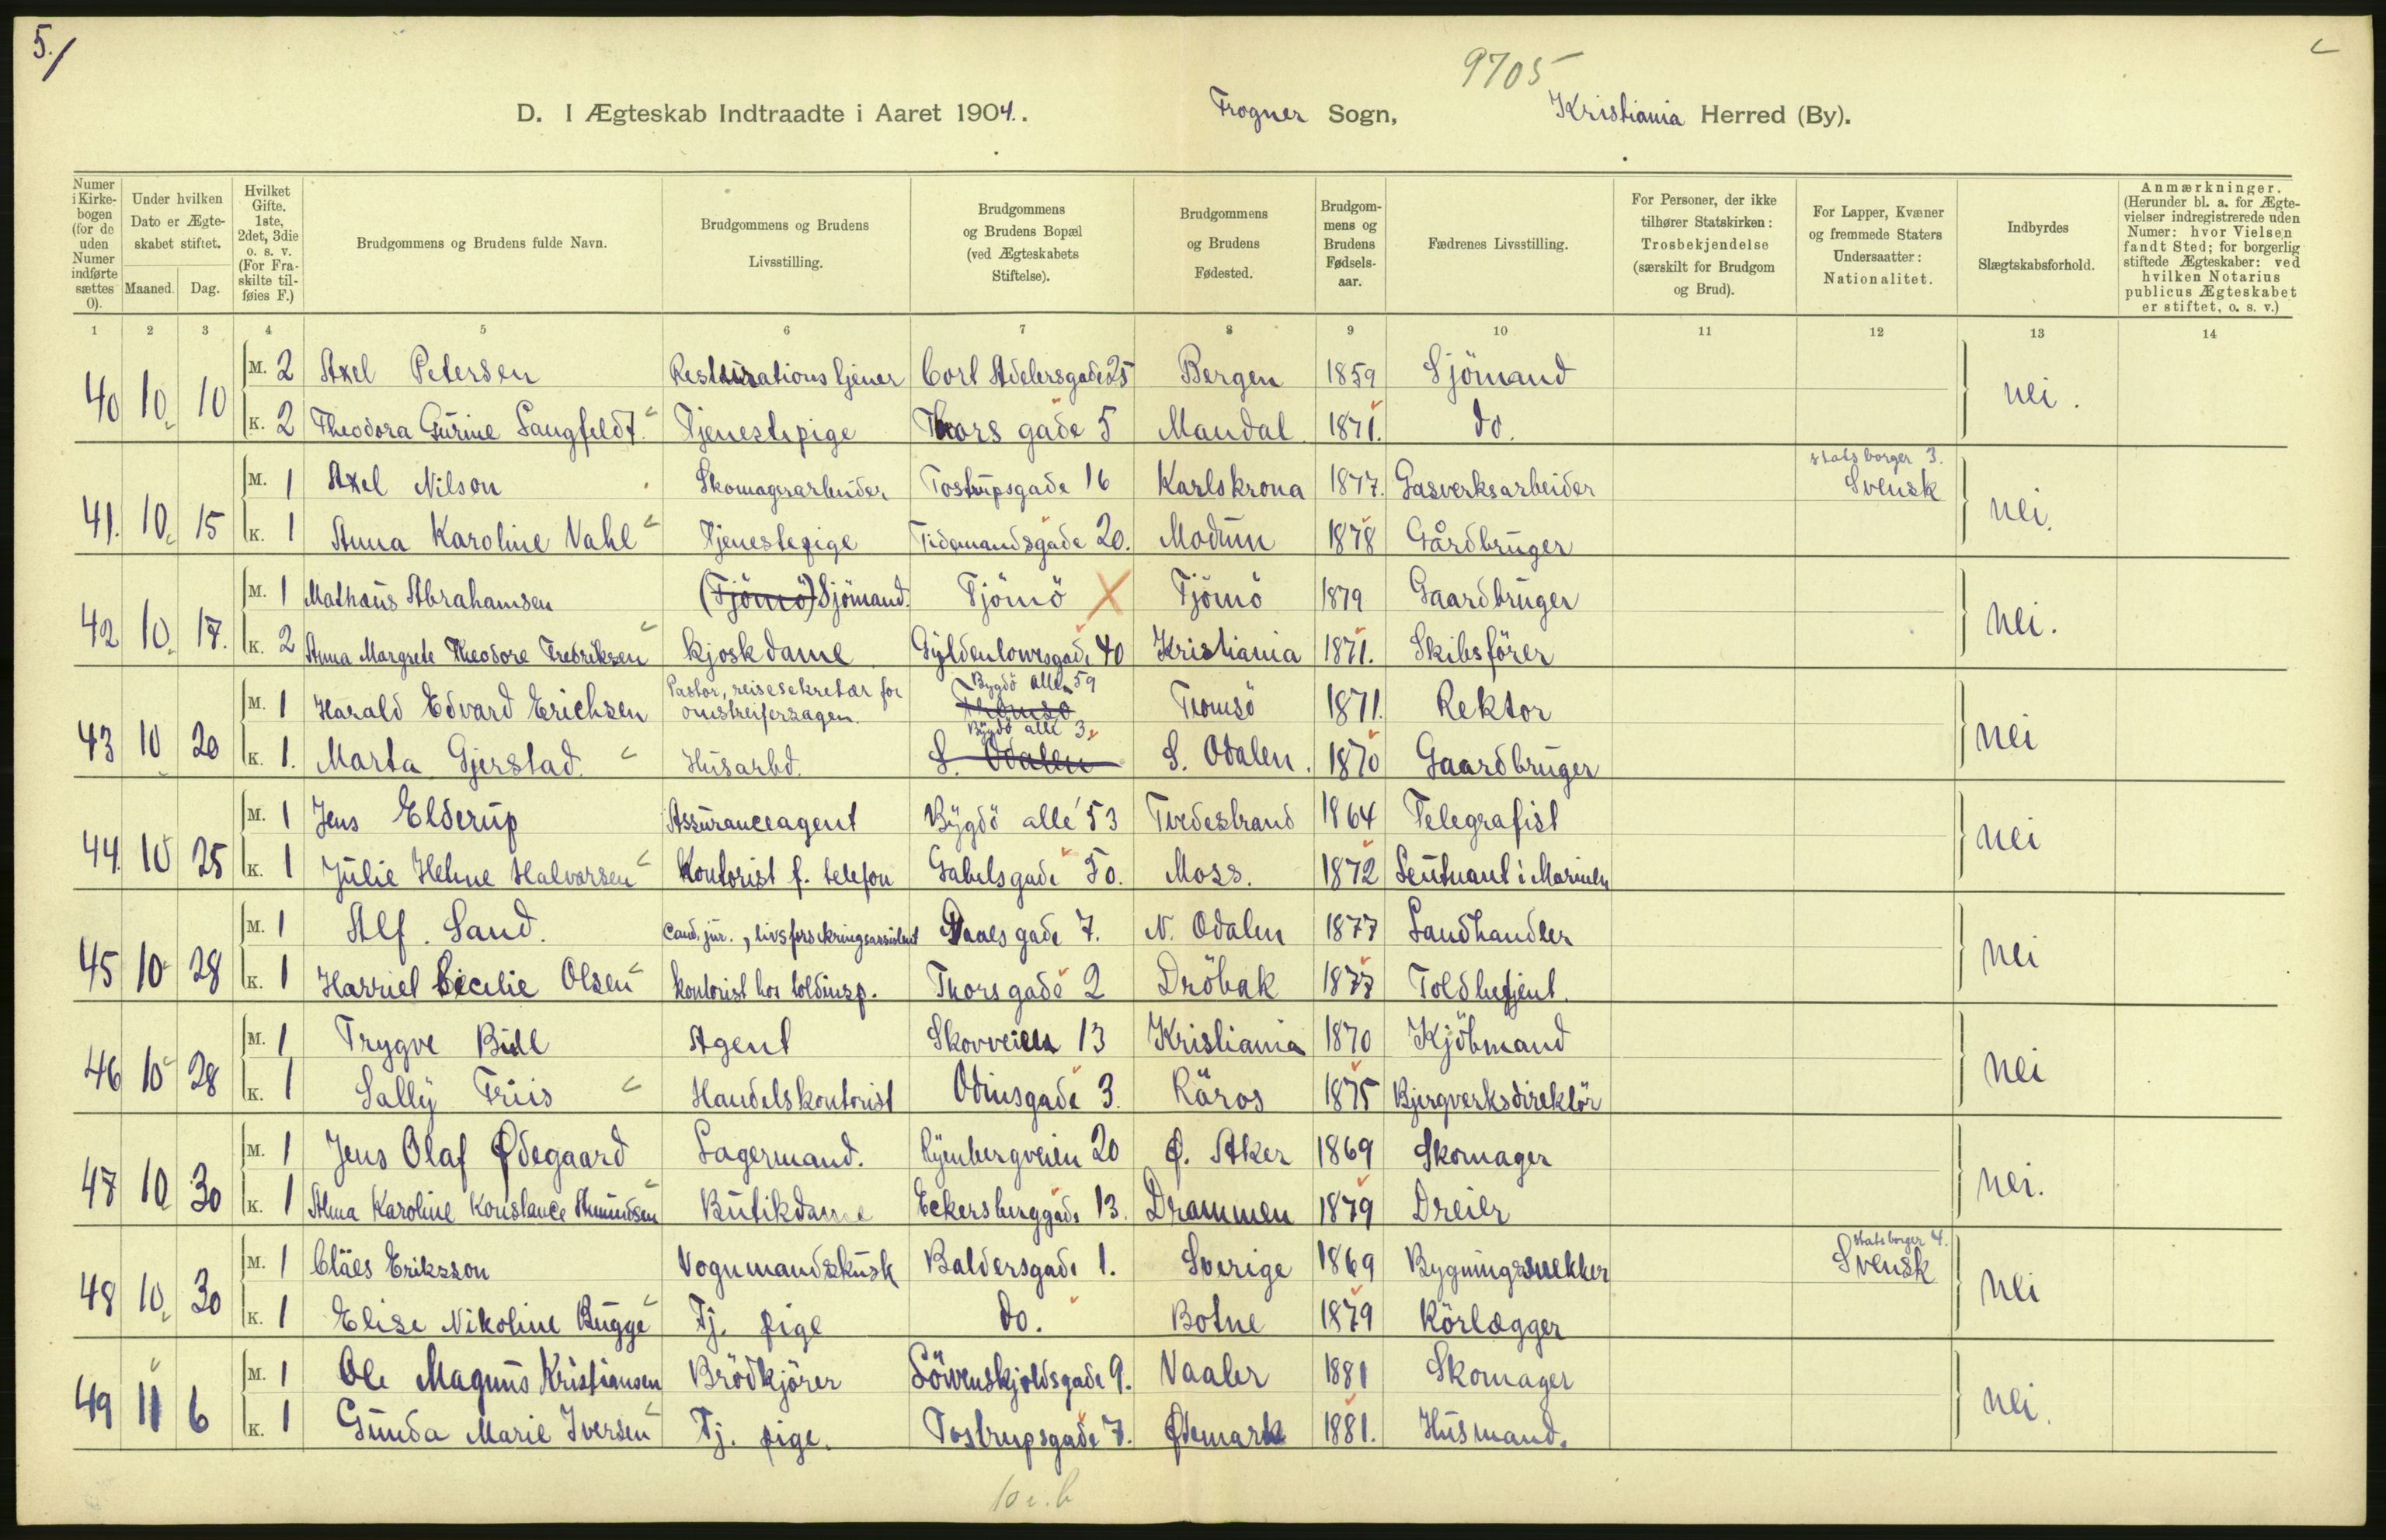 5./
9705
D. I Ægteskab Indtraadte i Aaret 1904. Frogner Sogn, Kristiania Herred (By).
Numer i Kirkebogen (for de uden Numer indførte sættes 0).
Under hvilken Dato er Ægteskabet stiftet.
Maaned. Dag.
Hvilket Gifte. 1ste, 2det, 3die o. s. v. (For Fraskilte tilføies F.)
Brudgommens og Brudens fulde Navn.
Brudgommens og Brudens Livsstilling.
Brudgommens og Brudens Bopæl (ved Ægteskabets Stiftelse).
Brudgommens og Brudens Fødested.
Brudgommens og Brudens Fødselsaar.
Fædrenes Livsstilling.
For Personer, der ikke tilhører Statskirken: Trosbekjendelse (særskilt for Brudgom og Brud).
For Lapper, Kvæner og fremmede Staters Undersaatter: Nationalitet.
Indbyrdes Slægtskabsforhold.
Anmærkninger. (Herunder bl. a. for Ægtevielser indregistrerede uden Numer: hvor Vielsen fandt Sted; for borgerlig stiftede Ægteskaber: ved hvilken Notarius publicus Ægteskabet er stiftet, o. s. v.)
1 2 3 4 5 6 7 8 9 10 11 12 13 14
40 10 10 M. 2 Axel Petersen Restaurationstjener Cort Adelersgade 25 Bergen 1859 Sjömand nei.
K. 2 Theodora Gurine Langfeldt. Tjenestepige Thors gade 5 Mandal 1871. do.
41. 10. 15 M. 1 Axel Nilson Skomagerarbeider Tostrupsgade 16 Karlskrona 1877. Gasverksarbeider statsborger 3. Svensk nei.
K. 1 Anna Karoline Vahl Tjenestepige Tidemandsgade 20. Modum 1878 Gårdbruger
42 10. 17. M. 1 Mathæus Abrahamsen (Tjömö) Sjömand. Tjömö X Tjömö 1879 Gaardbruger nei.
K. 2 Anna Margrete Theodore Fredriksen Kjoskdame Gyldenlowesgade 40 Kristiania 1871. Skibsförer
43 10 20 M. 1 Harald Edvard Erichsen Pastor, reisesekretær for omstreifersagen. Bygdö alle 59 Tromsö Tromsö 1871. Rektor nei
K. 1. Marta Gjerstad. Husarbd. Bygdö alle 3. S. Odalen S. Odalen. 1870 Gaardbruger
44. 10 25 M. 1 Jens Elderup Assuranceagent Bygdö alle 53 Tvedestrand 1864 Telegrafist nei
K. 1 Julie Helene Halvorsen Kontorist f. telefon Gabelsgade 50. Moss. 1872 Leutnant i Marinen
45 10 28 M. 1 Alf. Sand. Cand. jur., livsforsikringsassistent Daaes gade 7. N. Odalen 1877 Landhandler nei
K. 1 Harriet Cecilie Olsen kontorist hos toldinsp. Thorsgade 2 Dröbak 1877 Toldbetjent.
46 10 28 M. 1 Trygve Bull Agent Skovveien 13 Kristiania 1870 Kjöbmand nei
K. 1 Sally Friis Handelskontorist Odinsgade 3. Röros 1875 Bjergverksdirektör
47 10 30 M. 1 Jens Olaf Ødegaard Lagermand. Ryenbergveien 20 Ø. Aker 1869 Skomager nei.
K. 1 Alma Karoline Konstance Amundsen Butikdame Eckersberggade 13. Drammen 1879 Dreier
48 10. 30 M. 1 Claës Eriksson Vognmandskusk Baldersgade 1. Sverige 1869 Bygningssnekker statsborger 4. Svensk nei
K. 1 Elise Nikoline Bugge Tj. pige do. Botne 1879 Rörlægger
49 11 6 M. 1 Ole Magnus Kristiansen Brödkjörer Lövenskjoldsgade 9. Vaaler 1881 Skomager nei.
K. 1 Gunda Marie Iversen Tj. pige. Tostrupsgade 7. Ødemark 1881. Husmand.